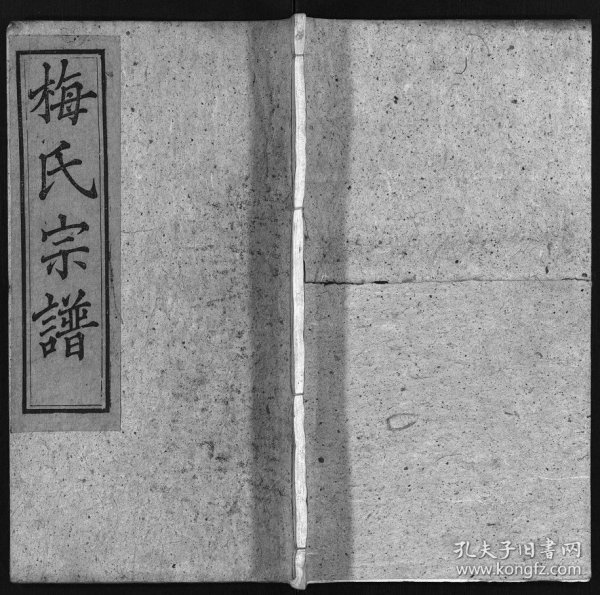 梅氏宗譜
孔夫子旧書网
www.kongfz.com